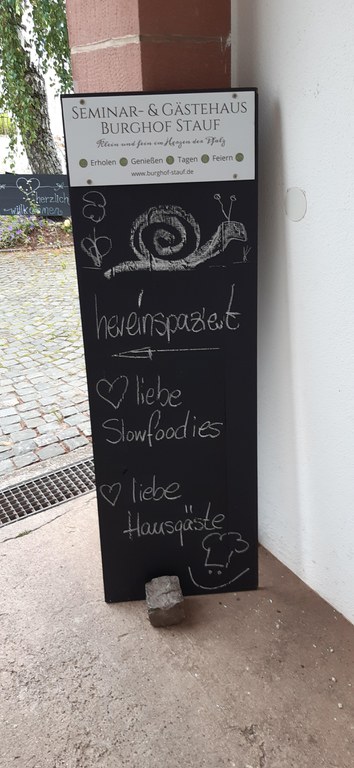 SEMINAR- & GÄSTEHAUS
BURGHOF STAUF
Klein und fein im Herzen der Pfalz
Erholen Genießen Tagen Feiern
www.burghof-stauf.de
herzlich
willkommen
hereinspaziert
liebe
Slowfoodies
liebe
Hausgäste